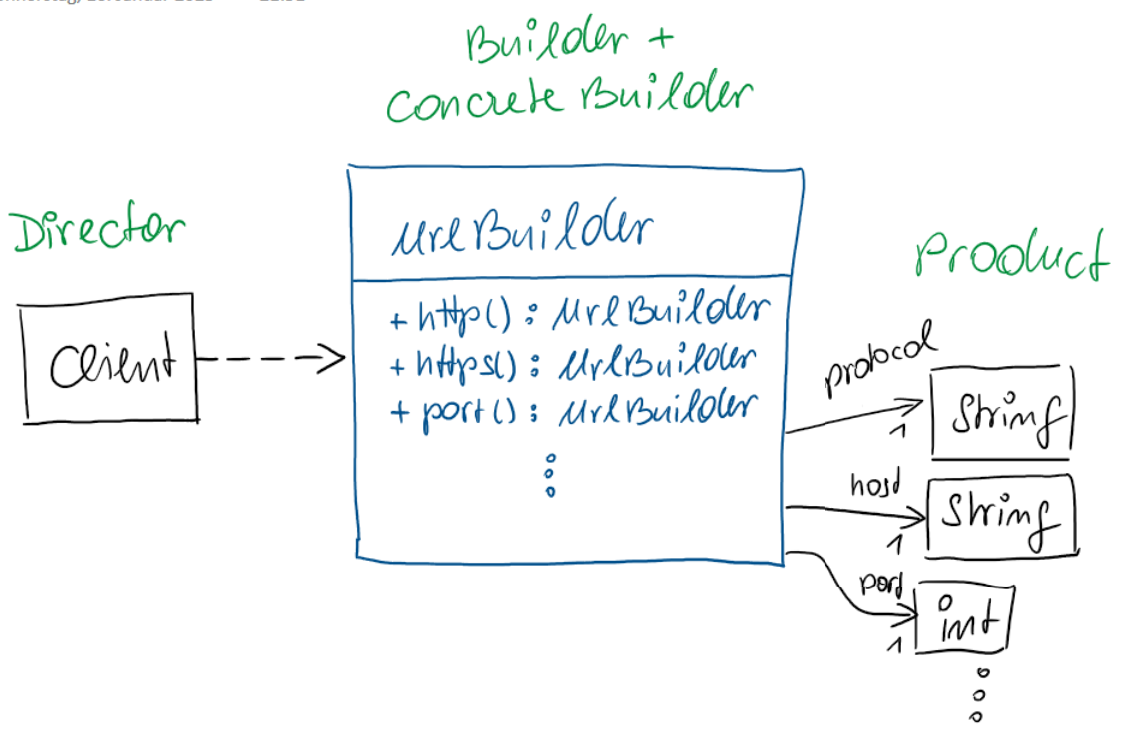 Builder +
Concrete Builder
Director
UrlBuilder
Product
Client
+ http() : UrlBuilder
+ https() : UrlBuilder
+ port() : UrlBuilder
protocol
1
String
host
1
String
port
1
int